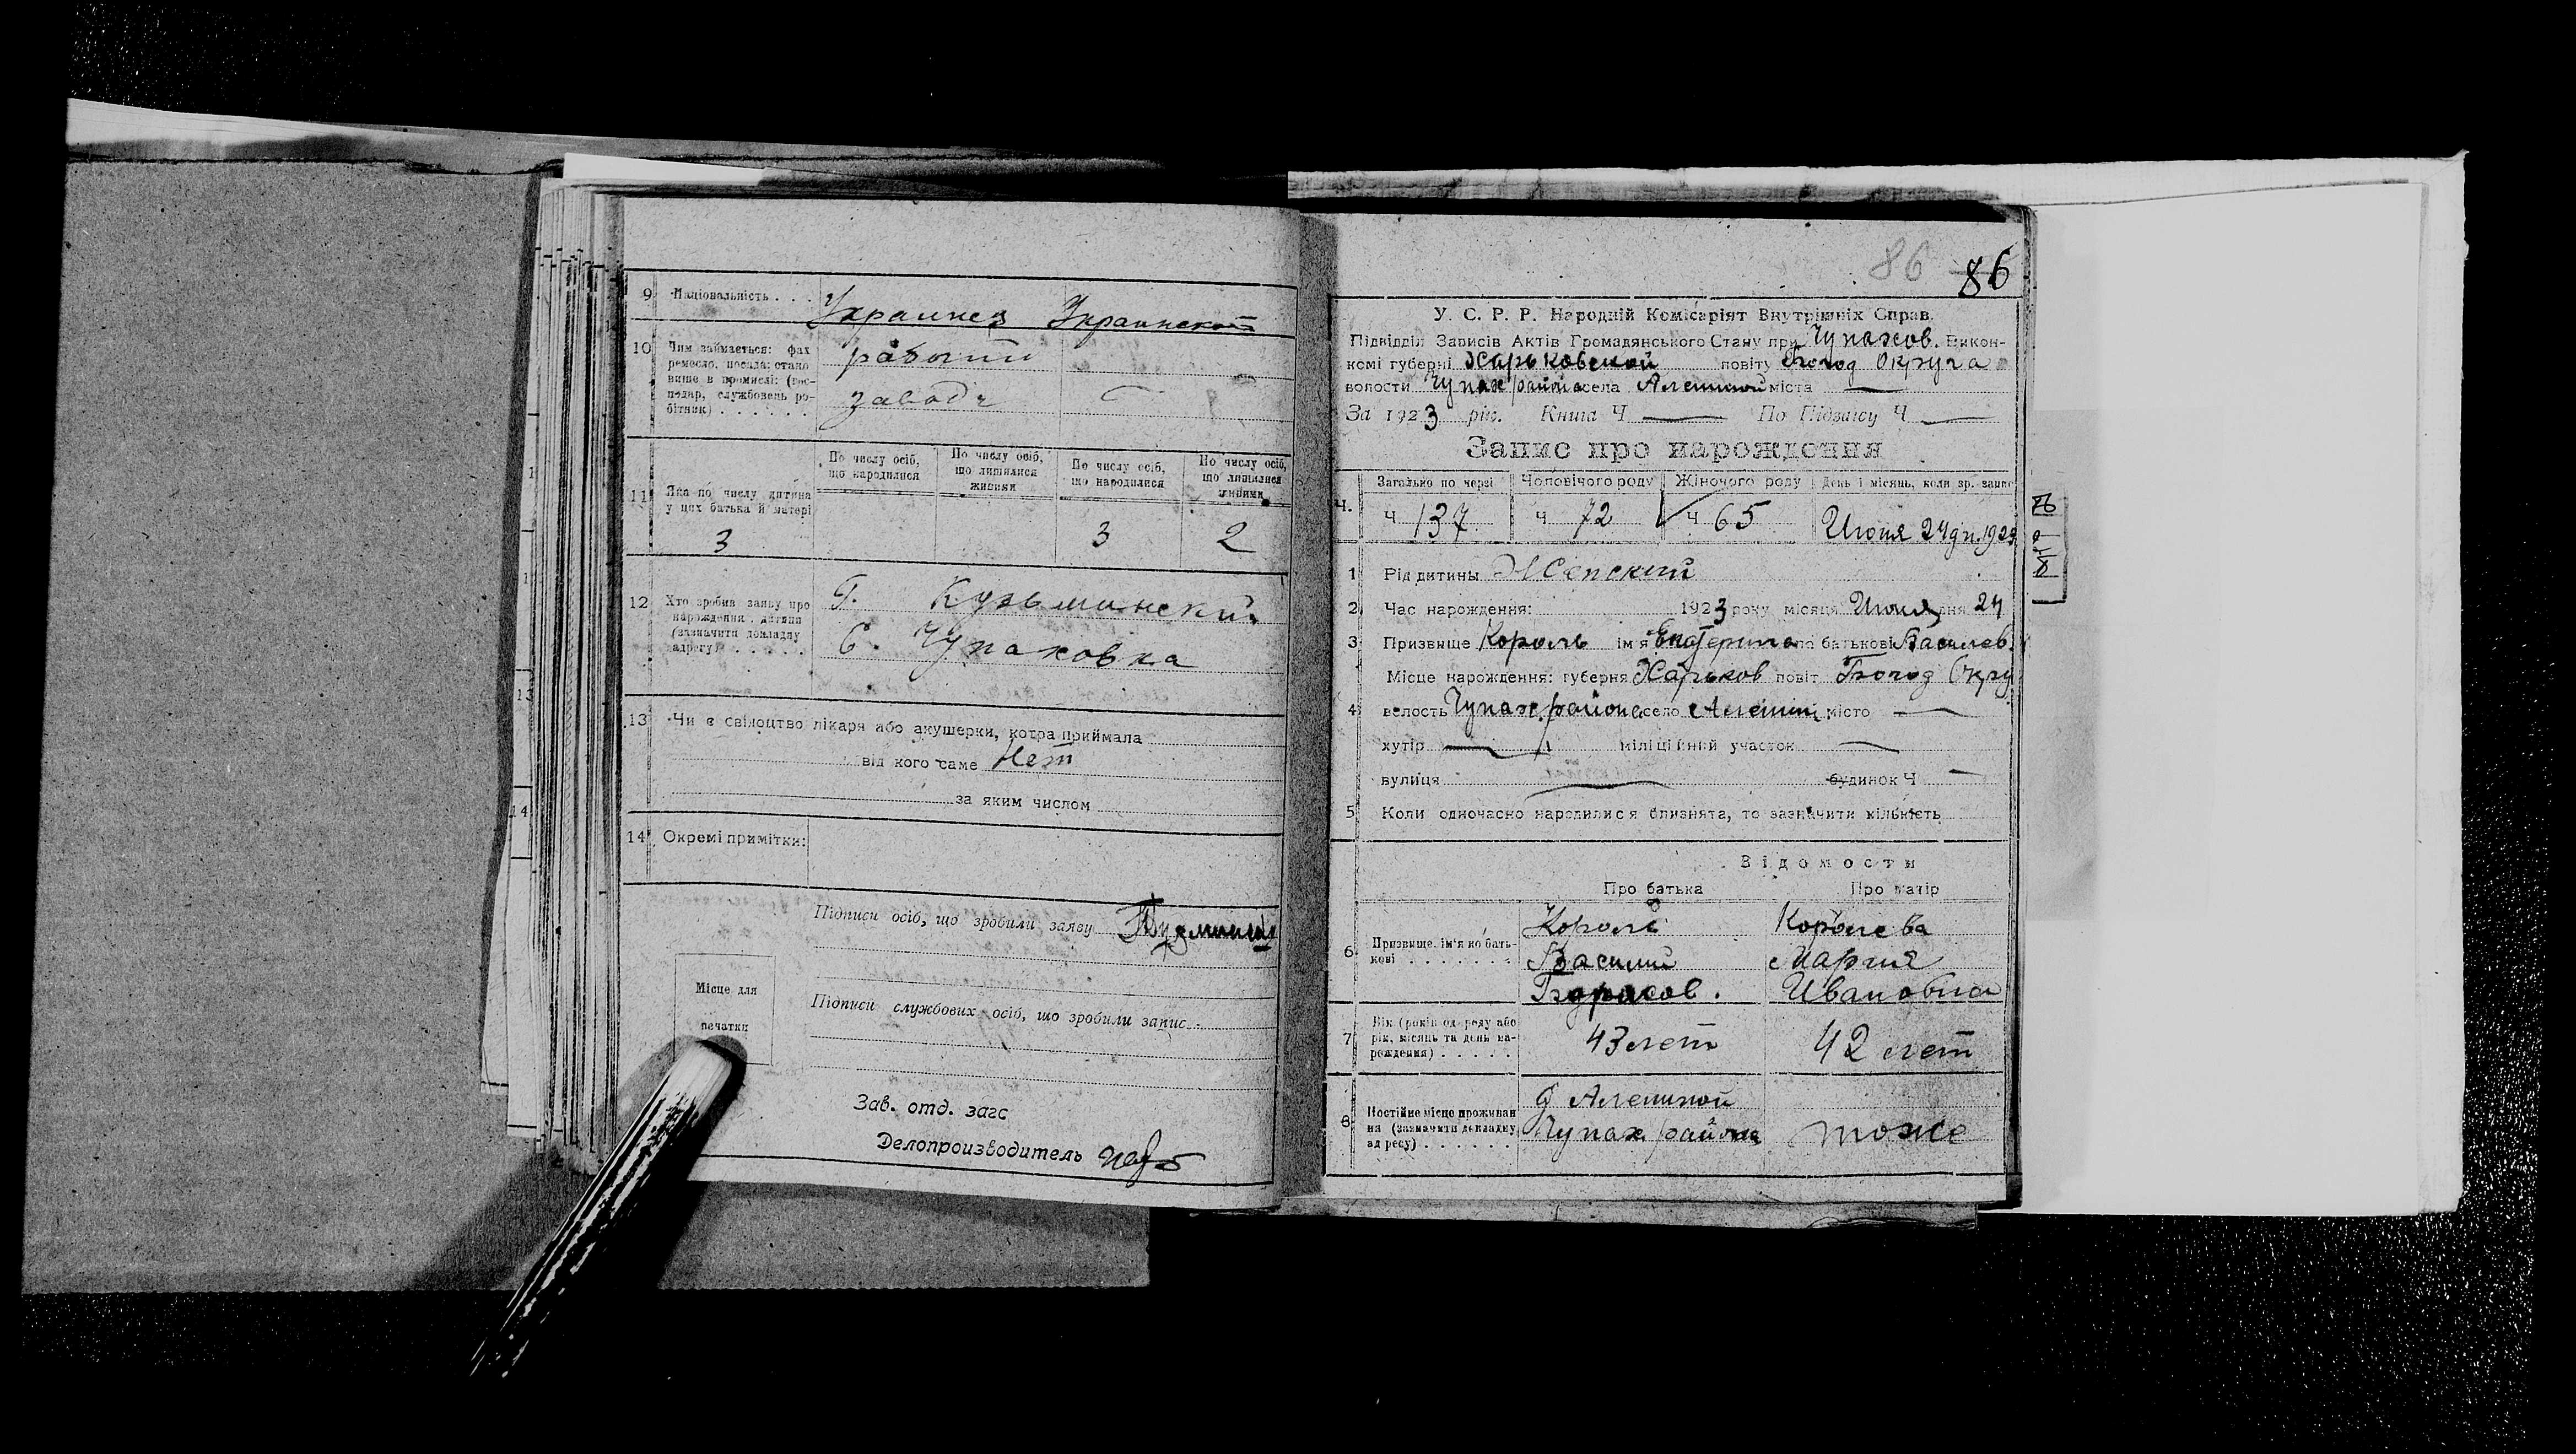 9 Національність . . . Украинец Украинской
10 Чим займається: фах ремесло, посада: становище в промислі: (господар, службовець робітник) . . . . . . .
рабочий
завода
11 Яка по числу дитина у цих батька й матері
По числу осіб, що народилися
По числу осіб, що лишилися живими
По числу осіб, що народилися
По числу осіб, що лишилися живими
3 3 2
12 Хто зробив заяву про народження дитини (зазначити докладну адресу) . . . . .
Г. Кузьминский
С. Чупаховка
13 Чи є свідоцтво лікаря або акушерки, котра приймала
від кого саме Нет
за яким числом
14 Окремі примітки:
Підписи осіб, що зробили заяву
Місце для печатки
Підписи службових осіб, що зробили запис
Зав. отд. загс
Делопроизводитель
86 86
У. С. Р. Р. Народній Комісаріят Внутрішніх Справ.
Підвідділ Записів Актів Громадянського Стану при Чупахов. Викон-
комі губерні Харьковской повіту Богод Округа
волости Чупах района села Алешиной міста —
За 1923 рік. Книга Ч — По Підзагсу Ч —
Запис про нарождення
Ч. Загально по черзі Чоловічого роду Жіночого роду День і місяць, коли зр. запис
Ч 137 Ч 72 Ч 65 Июня 24 дн. 1923
1 Рід дитины Женский
2 Час нарождення: 1923 року місяця Июня дня 24
3 Призвище Король ім'я Екатерина по батькові Василев.
Місце нарождення: губерня Харьков повіт Богод Окру
4 велость Чупах. района село Алешин місто —
хутір — міліційний участок —
вулиця — будинок Ч —
5 Коли одночасно народилися близнята, то зазначити кількість
Відомости
Про батька Про матір
6 Призвище, ім'я по батькові . . . . . . .
Король Королева
Василий Мария
Ивановна
7 Вік (років од роду або рік, місяць та день народження) . . . . .
43 лет 42 лет
8 Постійне місце проживання (зазначити докладну адресу) . . . . . . .
Алешиной
Чупах. района тоже